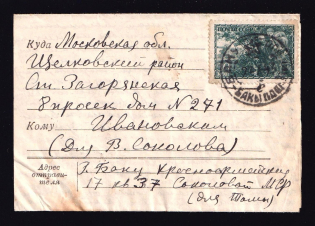 Куда Московская обл.
Щелковский район
Ст. Загорянская
8 просек дом N 241
Кому Ивановским
(Для В. Соколова)
Адрес отправителя
г. Баку Красноармейская
17 кв 37 Соколовой М
(для Томы)
ПОЧТА СССР
БАКЫ